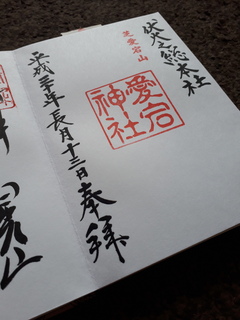 伏火之総本社
芝愛宕山
愛宕神社
平成二十年長月十三日奉拝